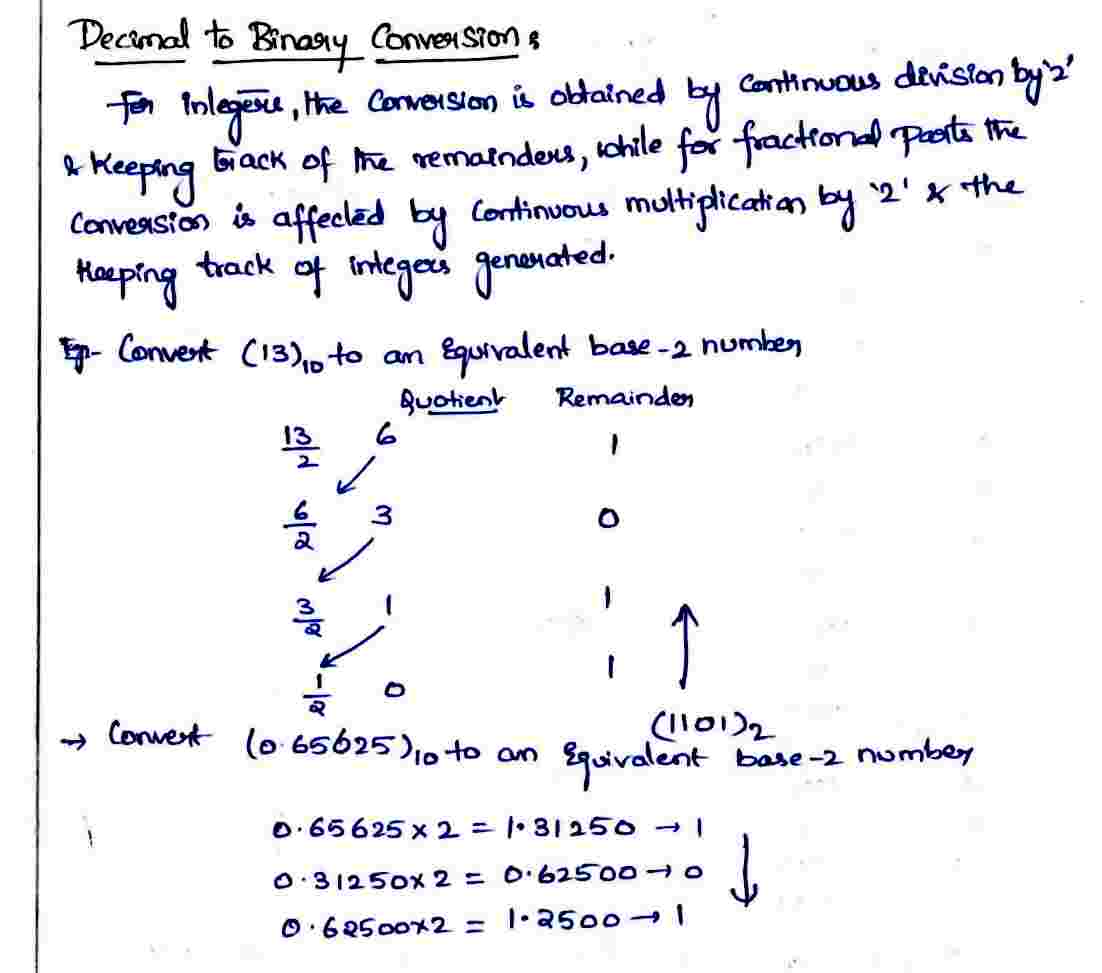 Decimal to Binary Conversion:
for integers, the conversion is obtained by continuous division by '2'
& keeping track of the remainders, while for fractional parts the
conversion is affected by continuous multiplication by '2' & the
keeping track of integers generated.
Eg- Convert (13)₁₀ to an equivalent base-2 number
Quotient Remainder
13/2 6 1
6/2 3 0
3/2 1 1
1/2 0 1
(1101)₂
→ Convert (0.65625)₁₀ to an equivalent base-2 number
0.65625 × 2 = 1.31250 → 1
0.31250 × 2 = 0.62500 → 0
0.62500 × 2 = 1.2500 → 1